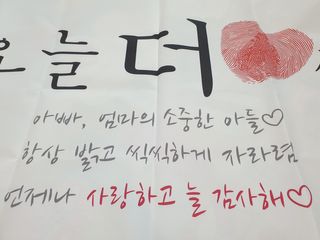 오늘 더
아빠, 엄마의 소중한 아들♡
항상 밝고 씩씩하게 자라렴
언제나 사랑하고 늘 감사해♡